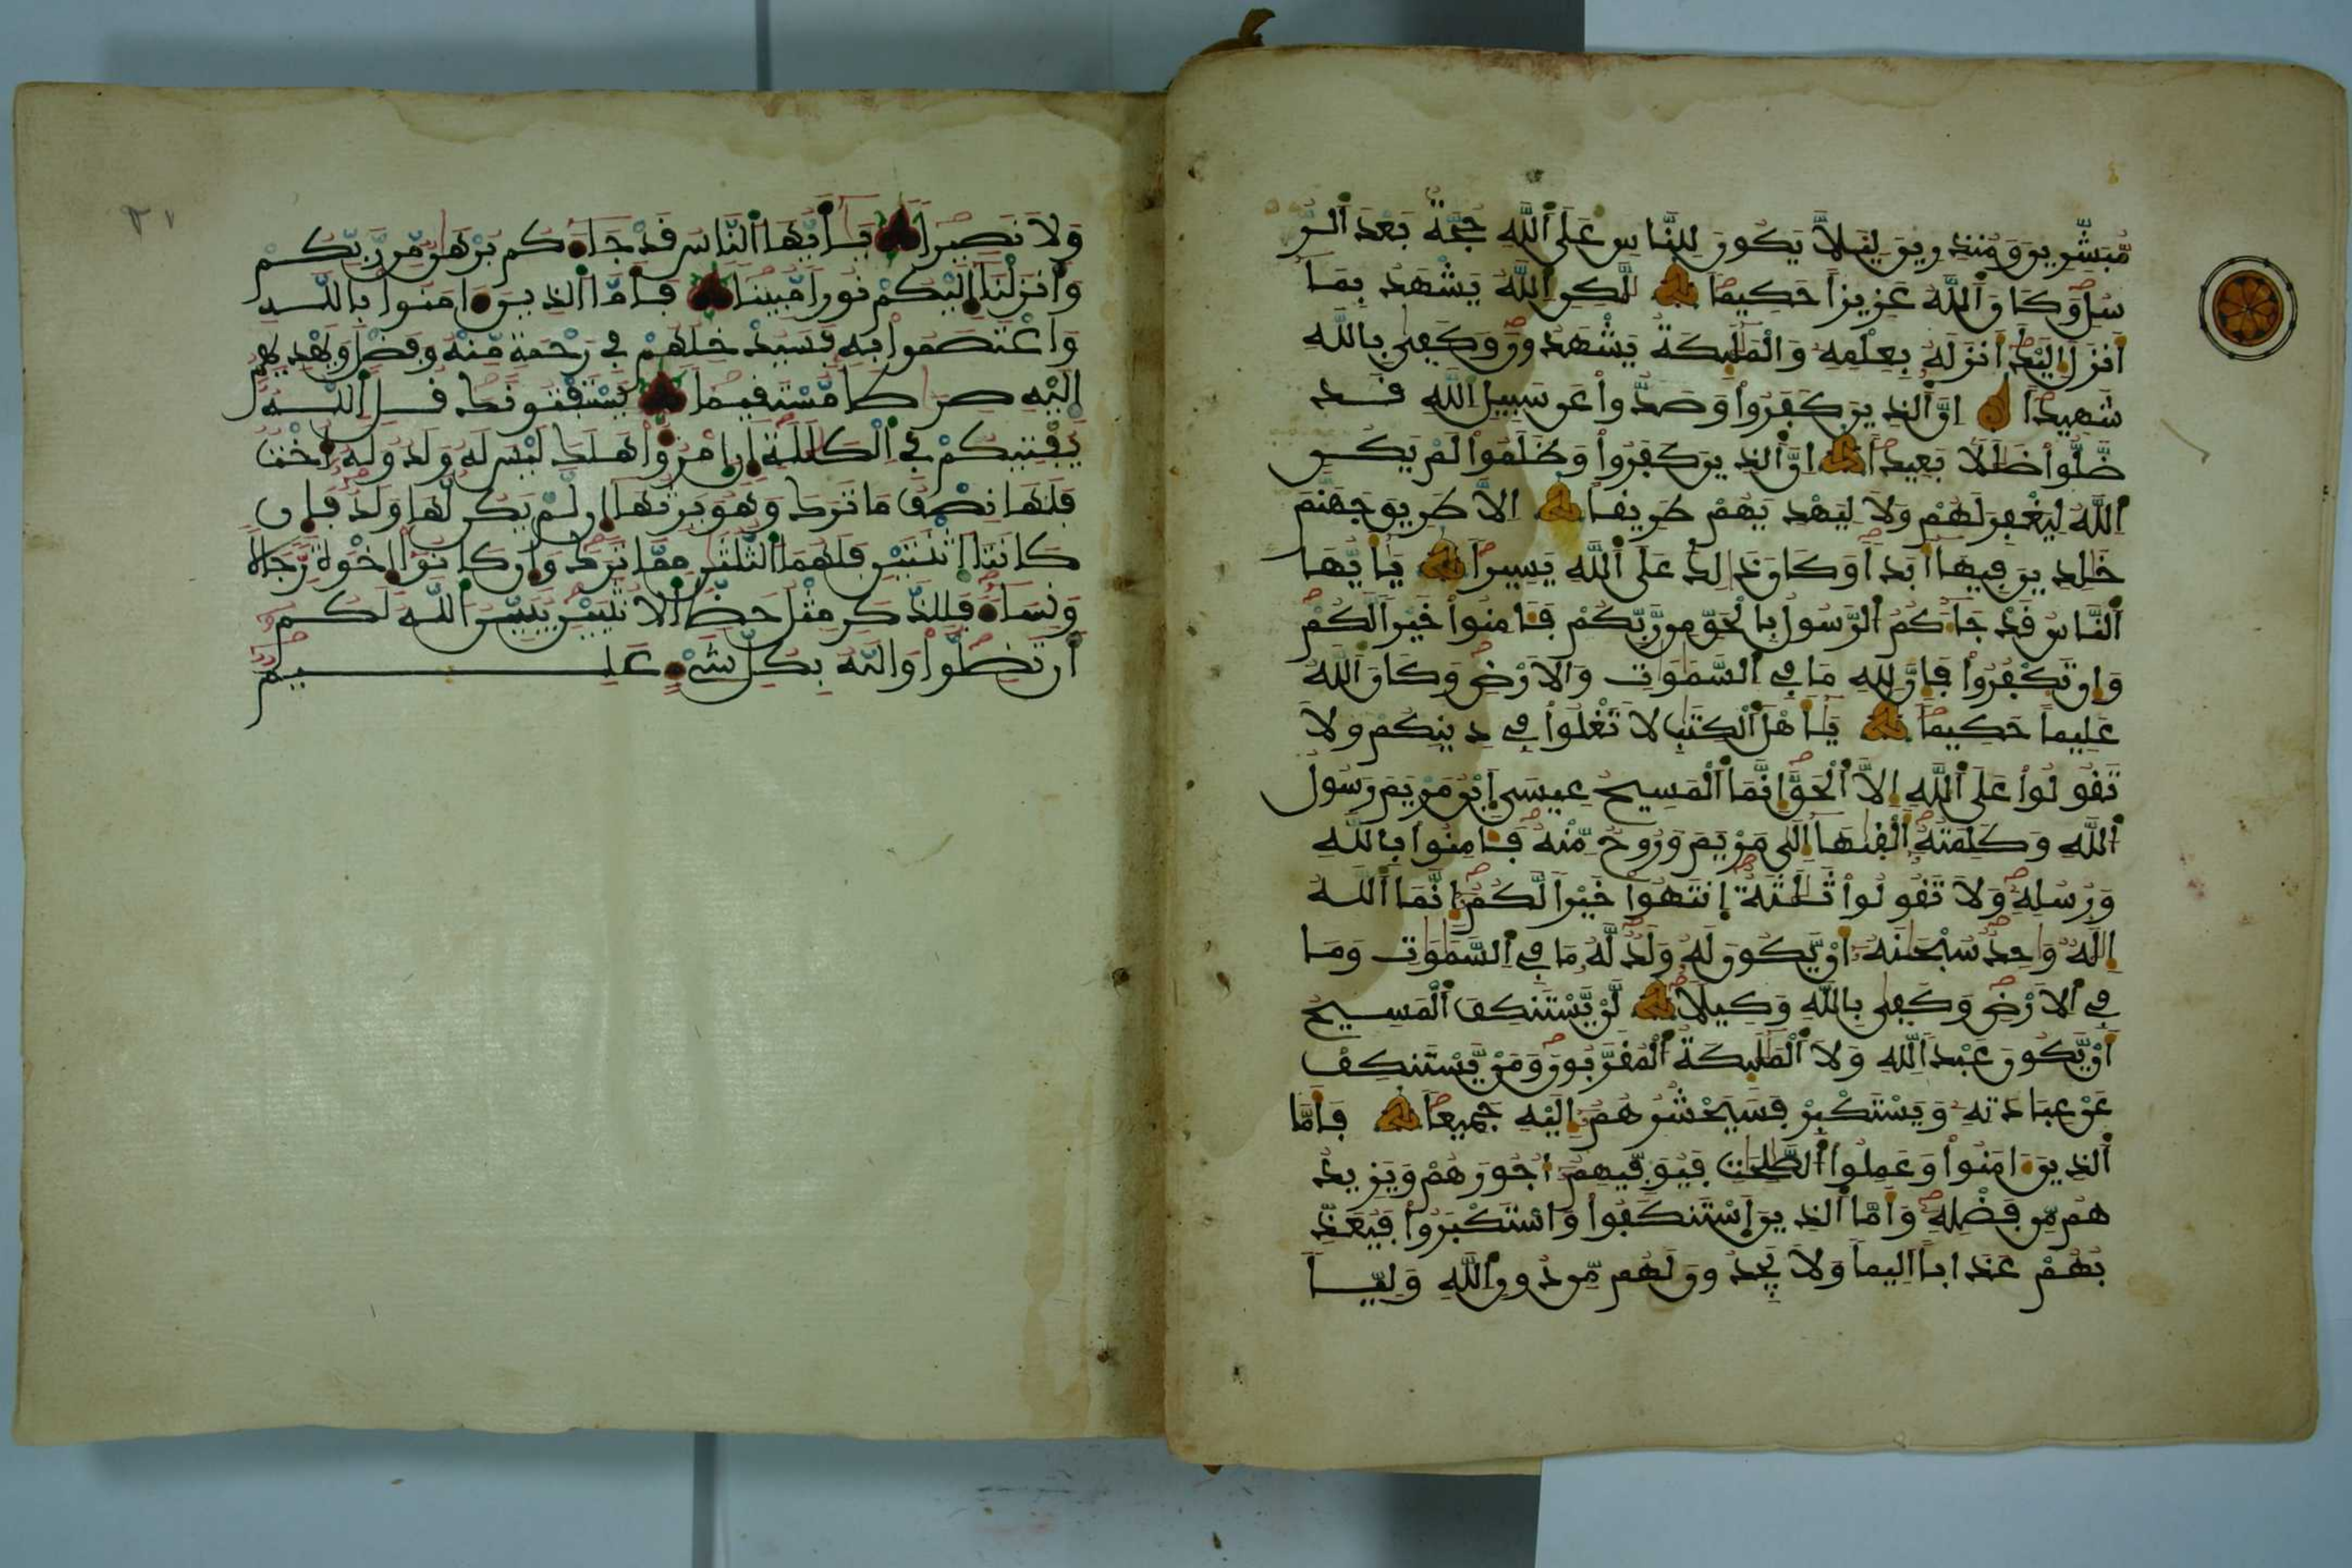 مُّبَشِّرِينَ وَمُنذِرِينَ لِيَلَّا يَكُونَ لِلنَّاسِ عَلَى اَللَّهِ حُجَّةٌ بَعْدَ اَلرُّ
سُلِ وَكَانَ اَللَّهُ عَزِيزاً حَكِيماً لَّكِنِ اِللَّهُ يَشْهَدُ بِمَا
أَنزَلَ إِلَيْكَ أَنزَلَهُ بِعِلْمِهِ وَالْمَلَٰٓئِكَةُ يَشْهَدُونَ وَكَفِىٰ بِاللَّهِ
شَهِيداً إِنَّ اَلذِينَ كَفَرُواْ وَصَدُّواْ عَن سَبِيلِ اِللَّهِ قَد
ضَّلُّواْ ضَلَٰلاً بَعِيداً اِنَّ اَلذِينَ كَفَرُواْ وَظَلَمُواْ لَمْ يَكُنِ
اِللَّهُ لِيَغْفِرَ لَهُمْ وَلَا لِيَهْدِيَهُمْ طَرِيقاً إِلَّا طَرِيقَ جَهَنَّمَ
خَٰلِدِينَ فِيهَا أَبَداً وَكَانَ ذَٰلِكَ عَلَى اَللَّهِ يَسِيراً يَٰأَيُّهَا
اَلنَّاسُ قَدْ جَآءَكُمُ اُلرَّسُولُ بِالْحَقِّ مِن رَّبِّكُمْ فَـَٔامِنُواْ خَيْراً لَّكُمْ
وَإِن تَكْفُرُواْ فَإِنَّ لِلهِ مَا فِى اِلسَّمَٰوَٰتِ وَالَارْضِ وَكَانَ اَللَّهُ
عَلِيماً حَكِيماً يَٰأَهْلَ اَلْكِتَٰبِ لَا تَغْلُواْ فِى دِينِكُمْ وَلَا
تَقُولُواْ عَلَى اَللَّهِ إِلَّا اَلْحَقَّ إِنَّمَا اَلْمَسِيحُ عِيسَى اَبْنُ مَرْيَمَ رَسُولُ
اُللَّهِ وَكَلِمَتُهُ أَلْقَىٰهَا إِلَىٰ مَرْيَمَ وَرُوحٌ مِّنْهُ فَـَٔامِنُواْ بِاللَّهِ
وَرُسُلِهِ وَلَا تَقُولُواْ ثَلَٰثَةٌ اِنتَهُواْ خَيْراً لَّكُمُ إِنَّمَا اَللَّهُ
إِلَٰهٌ وَٰحِدٌ سُبْحَٰنَهُ أَنْ يَّكُونَ لَهُ وَلَدٌ لَّهُ مَا فِى اِلسَّمَٰوَٰتِ وَمَا
فِى اِلَارْضِ وَكَفِىٰ بِاللَّهِ وَكِيلاً لَّنْ يَّسْتَنكِفَ اَلْمَسِيحُ
أَنْ يَّكُونَ عَبْداً لِّلهِ وَلَا اَلْمَلَٰٓئِكَةُ اُلْمُقَرَّبُونَ وَمَنْ يَّسْتَنكِفْ
عَنْ عِبَادَتِهِ وَيَسْتَكْبِرْ فَسَيَحْشُرُهُمُ إِلَيْهِ جَمِيعاً فَأَمَّا
اَلذِينَ ءَامَنُواْ وَعَمِلُواْ اُلصَّٰلِحَٰتِ فَيُوَفِّيهِمُ أُجُورَهُمْ وَيَزِيدُ
هُم مِّن فَضْلِهِ وَأَمَّا اَلذِينَ اَسْتَنكَفُواْ وَاسْتَكْبَرُواْ فَيُعَذِّ
بُهُمْ عَذَاباً اَلِيماً وَلَا يَجِدُونَ لَهُم مِّن دُونِ اِللَّهِ وَلِيّاً
وَلَا نَصِيراً يَٰأَيُّهَا اَلنَّاسُ قَدْ جَآءَكُم بُرْهَٰنٌ مِّن رَّبِّكُمْ
وَأَنزَلْنَا إِلَيْكُمْ نُوراً مُّبِيناً فَأَمَّا اَلذِينَ ءَامَنُواْ بِاللَّهِ
وَاعْتَصَمُواْ بِهِ فَسَيُدْخِلُهُمْ فِى رَحْمَةٍ مِّنْهُ وَفَضْلٍ وَيَهْدِيهِمُ
إِلَيْهِ صِرَٰطاً مُّسْتَقِيماً يَسْتَفْتُونَكَ قُلِ اِللَّهُ
يُفْتِيكُمْ فِى اِلْكَلَٰلَةِ إِنِ اِمْرُؤٌاْ هَلَكَ لَيْسَ لَهُ وَلَدٌ وَلَهُ أُخْتٌ
فَلَهَا نِصْفُ مَا تَرَكَ وَهُوَ يَرِثُهَا إِن لَّمْ يَكُن لَّهَا وَلَدٌ فَإِن
كَانَتَا اَثْنَتَيْنِ فَلَهُمَا اَلثُّلُثَٰنِ مِمَّا تَرَكَ وَإِن كَانُواْ إِخْوَةً رِّجَالاً
وَنِسَآءً فَلِلذَّكَرِ مِثْلُ حَظِّ اِلُانثَيَيْنِ يُبَيِّنُ اُللَّهُ لَكُمُ
أَن تَضِلُّواْ وَاللَّهُ بِكُلِّ شَىْءٍ عَلِيمٌ